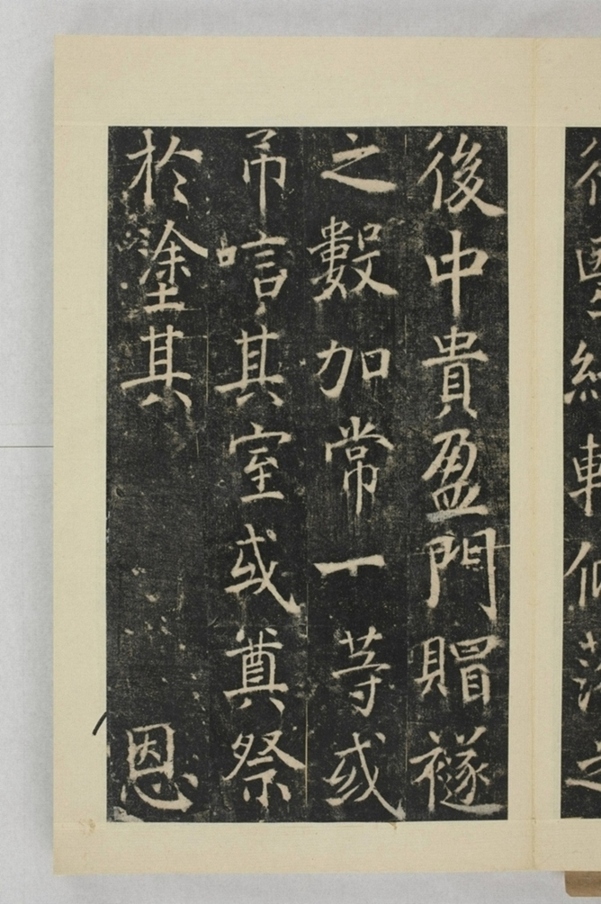 後中貴盈門賵襚
之數加常一等或
弔唁其室或奠祭
於塗其恩